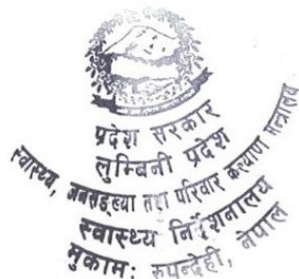 प्रदेश सरकार
लुम्बिनी प्रदेश
स्वास्थ्य, जनसङ्ख्या तथा परिवार कल्याण मन्त्रालय
स्वास्थ्य निर्देशनालय
मुकाम: रुपन्देही, नेपाल